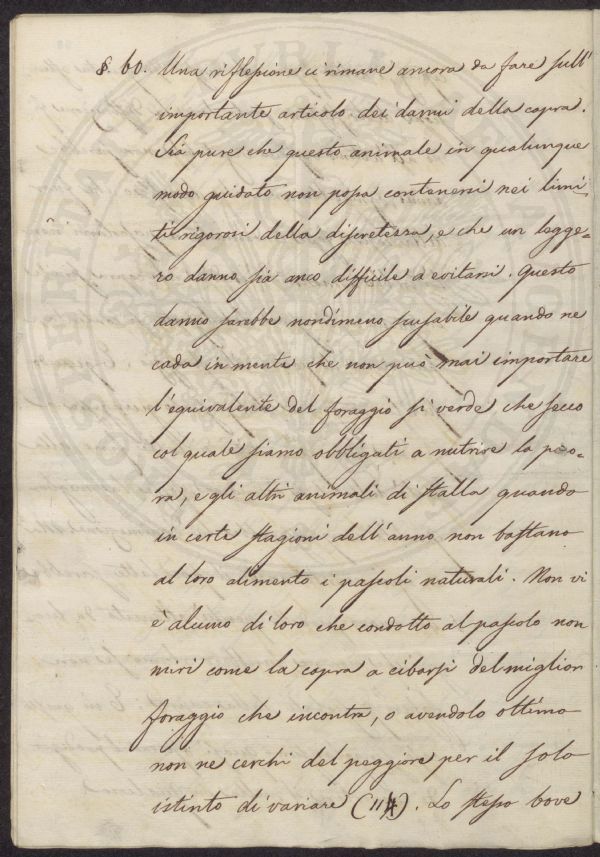 §. 60. Una riflessione ci rimane ancora da fare sull'
importante articolo dei danni della capra.
Sia pure che questo animale in qualunque
modo guidato non possa contenersi nei limi-
ti rigorosi della discretezza, e che un legge-
ro danno sia anco difficile a evitarsi. Questo
danno sarebbe nondimeno scusabile quando ne
cada in mente che non può mai importare
l'equivalente del foraggio sì verde che secco
col quale siamo obbligati a nutrire la peco-
ra, e gli altri animali di stalla quando
in certe stagioni dell'anno non bastano
al loro alimento i pascoli naturali. Non vi
è alcuno di loro che condotto al pascolo non
miri come la capra a cibarsi del miglior
foraggio che incontra, o avendolo ottimo
non ne cerchi del peggiore per il solo
istinto di variare (114). Lo stesso bove